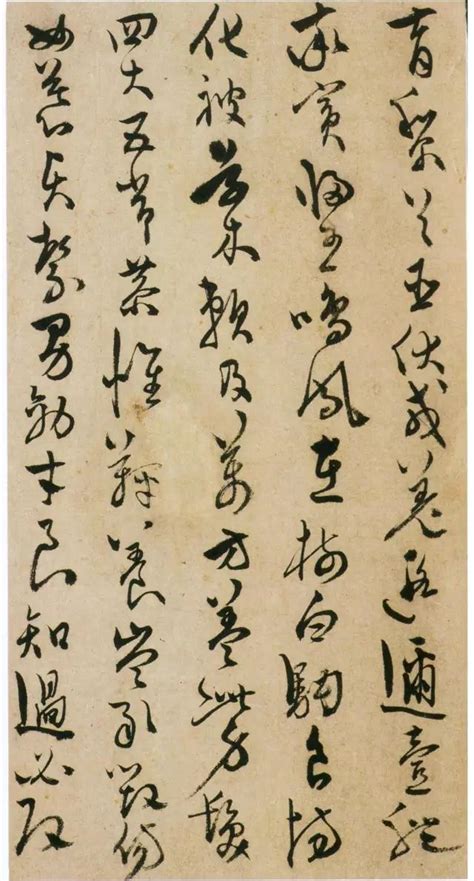 育黎首臣伏戎羌遐邇壹體
率賓歸王鳴鳳在樹白駒食場
化被草木賴及萬方蓋此身髮
四大五常恭惟鞠養豈敢毀傷
女慕貞絜男効才良知過必改